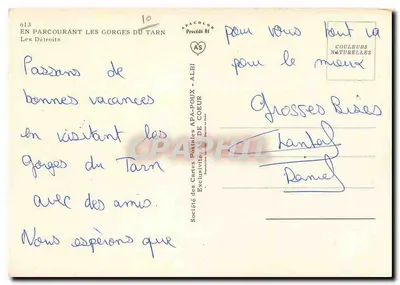 613
EN PARCOURANT LES GORGES DU TARN
Les Détroits
10
Passons de
bonnes vacances
en visitant les
gorges du Tarn
avec des amis.
Nous espérons que
APACOLOR
Procédé BI
AS
Société des Cartes Postales APA-POUX - ALBI
Exclusivité "AS" DE COEUR
pour vous tout va
pour le mieux
COULEURS
NATURELLES
Grosses Bises
Chantal
Daniel
CPAPHIL.com